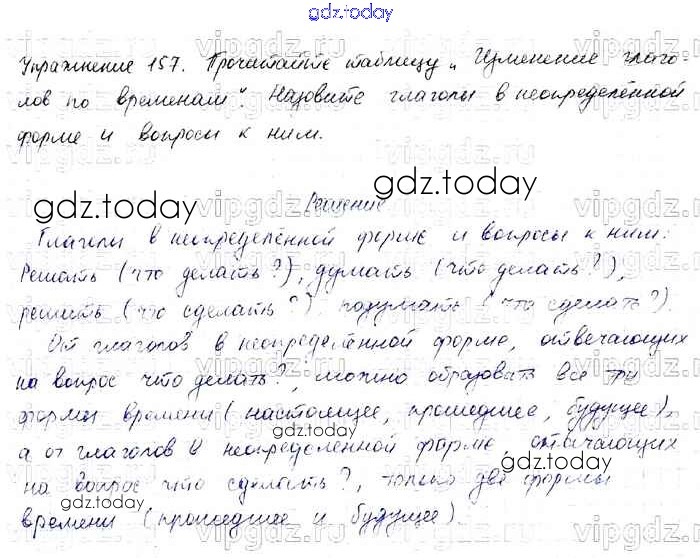 gdz.today
Упражнение 157. Прочитайте таблицу „Изменение глаго-
лов по временам". Назовите глаголы в неопределённой
форме и вопросы к ним.
gdz.today
gdz.today
Решение
Глаголы в неопределённой форме и вопросы к ним:
Решать (что делать?), думать (что делать?),
решить (что сделать?), подумать (что сделать?).
От глаголов в неопределённой форме, отвечающих
на вопрос что делать?, можно образовать все три
формы времени (настоящее, прошедшее, будущее),
gdz.today
а от глаголов в неопределённой форме отвечающих
gdz.today
на вопрос что сделать?, только две формы
gdz.today
времени (прошедшее и будущее).